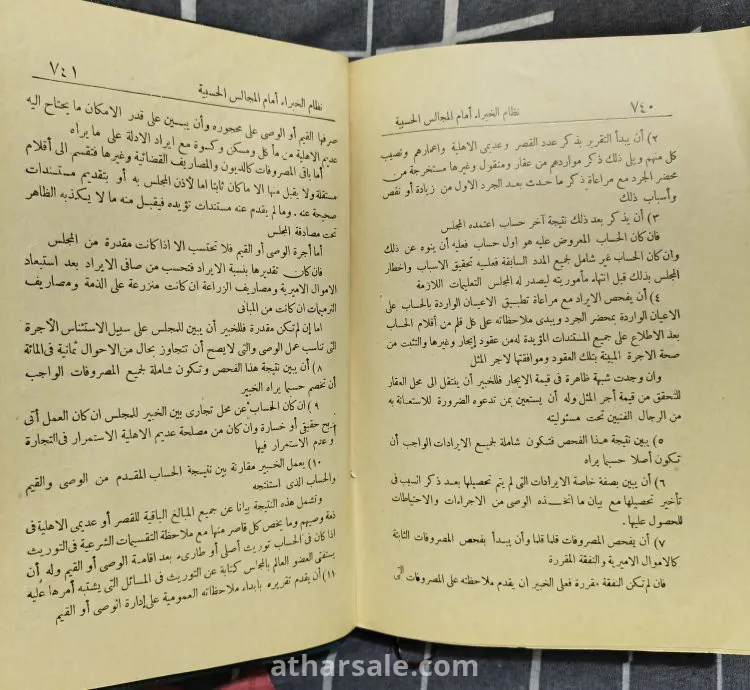 ٧٤٠ نظام الخبراء أمام المجالس الحسبية
٢) أن يبدأ التقرير بذكر عدد القصر وعديمى الاهلية واعمارهم ونصيب
كل منهم ويلى ذلك ذكر مواردهم من عقار ومنقول وغيرها مستخرجة من
محضر الجرد مع مراعاة ذكر ما حدث بعد الجرد الاول من زيادة أو نقص
وأسباب ذلك
٣) أن يذكر بعد ذلك نتيجة آخر حساب اعتمده المجلس
فان كان الحساب المعروض عليه هو اول حساب فعليه أن ينوه عن ذلك
وان كان الحساب غير شامل لجميع المدد السابقة فعليه تحقيق الاسباب واخطار
المجلس بذلك قبل انتهاء مأموريته ليصدر له المجلس التعليمات اللازمة
٤) أن يفحص الايراد مع مراعاة تطبيق الاعيان الواردة بالحساب على
الاعيان الواردة بمحضر الجرد ويبدى ملاحظاته على كل قلم من أقلام الحساب
بعد الاطلاع على جميع المستندات المؤيدة له من عقود إيجار وغيرها والتثبت من
صحة الاجرة المبينة بتلك العقود وموافقتها لاجر المثل
وان وجدت شبهة ظاهرة فى قيمة الايجار فللخبير أن ينتقل الى محل العقار
للتحقق من قيمة أجر المثل وله أن يستعين بمن تدعوه الضرورة للاستعانة به
من الرجال الفنيين تحت مسئوليته
٥) يبين نتيجة هذا الفحص فتكون شاملة لجميع الايرادات الواجب أن
تكون أصلا حسبما يراه
٦) أن يبين بصفة خاصة الايرادات التى لم يتم تحصيلها بعد ذكر السبب فى
تأخير تحصيلها مع بيان ما اتخذه الوصى من الاجراءات والاحتياطات
للحصول عليها .
٧) أن يفحص المصروفات قلما قلما وأن يبدأ بفحص المصروفات الثابتة
كالاموال الاميرية والنفقة المقررة
فان لم تكن النفقة مقررة فعلى الخبير ان يقدم ملاحظته على المصروفات التى
نظام الخبراء أمام المجالس الحسبية ٧٤١
صرفها القيم أو الوصى على محجوره وأن يبين على قدر الامكان ما يحتاج اليه
عديم الاهلية من مأكل ومسكن وكسوة مع ايراد الادلة على ما يراه
أما باقى المصروفات كالديون والمصاريف القضائية وغيرها فتقسم الى أقلام
مستقلة ولا يقبل منها الا ما كان ثابتا اما لأذن المجلس به أو بتقديم مستندات
صحيحة عنه . وما لم يقدم عنه مستندات تؤيده فيقبل منه ما لا يكذبه الظاهر
تحت مصادقة المجلس
أما أجرة الوصى أو القيم فلا تحتسب الا اذا كانت مقدرة من المجلس
فان كان تقديرها بنسبة الايراد فتحسب من صافى الايراد بعد استبعاد
الاموال الاميرية ومصاريف الزراعة ان كانت منزرعة على الذمة ومصاريف
الترميمات ان كانت من المبانى
اما إن لم تكن مقدرة فللخبير أن يبين للمجلس على سبيل الاستئناس الأجرة
التى تناسب عمل الوصى والتى لا يصح أن تتجاوز بحال من الاحوال ثمانية فى المائة
٨) أن يبين نتيجة هذا الفحص وتكون شاملة لجميع المصروفات الواجب
أن تخصم حسبما يراه الخبير
٩) ان كان الحساب عن محل تجارى بين الخبير للمجلس ان كان العمل أتى
بربح حقيقى أو خسارة وان كان من مصلحة عديم الاهلية الاستمرار فى التجارة
وعدم الاستمرار فيها
١٠) يعمل الخبير مقارنة بين نتيجة الحساب المقدم من الوصى والقيم
والحساب الذى استنتجه
وتشمل هذه النتيجة بيانا عن جميع المبالغ الباقية للقصر أو عديمى الاهلية فى
ذمة وصيهم وما يخص كل قاصر منها مع ملاحظة التقسيمات الشرعية فى التوريث
اذا كان فى الحساب توريث أصلى أو طارىء بعد اقامة الوصى أو القيم وله أن
يستفتى العضو العالم بالمجلس كتابة عن التوريث فى المسائل التى يشتبه أمرها عليه
١١) أن يقدم تقريره بابداء ملاحظاته العمومية على إدارة الوصى أو القيم
atharsale.com